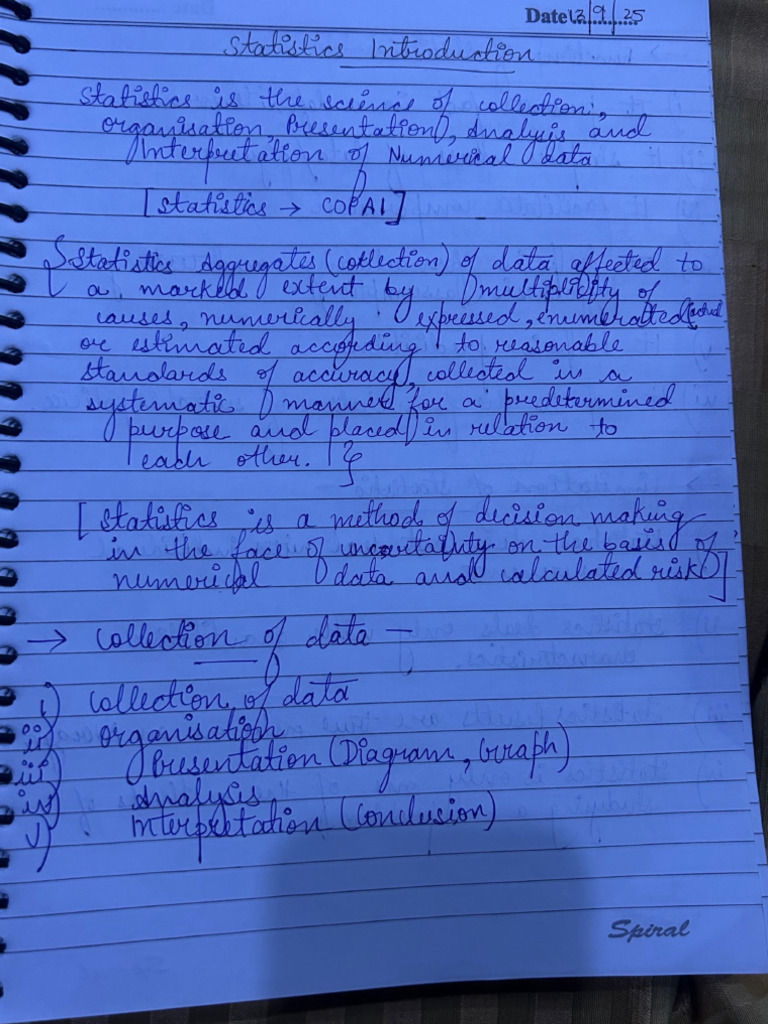 Date 12/9/25
Statistics Introduction
Statistics is the science of collection,
organisation, Presentation, Analysis and
Interpretation of Numerical data
[Statistics → COPAI]
{Statistics Aggregates (collection) of data affected to
a marked extent by multiplicity of
causes, numerically expressed, enumeratted
or estimated according to reasonable
standards of accuracy, collected in a
systematic manner for a predetermined
purpose and placed in relation to
each other. }
[Statistics is a method of decision making
in the face of uncertainty on the basis of
numerical data and calculated risk]
→ collection of data —
i) collection of data
ii) organisation
iii) Presentation (Diagram, Graph)
iv) Analysis
v) Interpretation (Conclusion)
Spiral